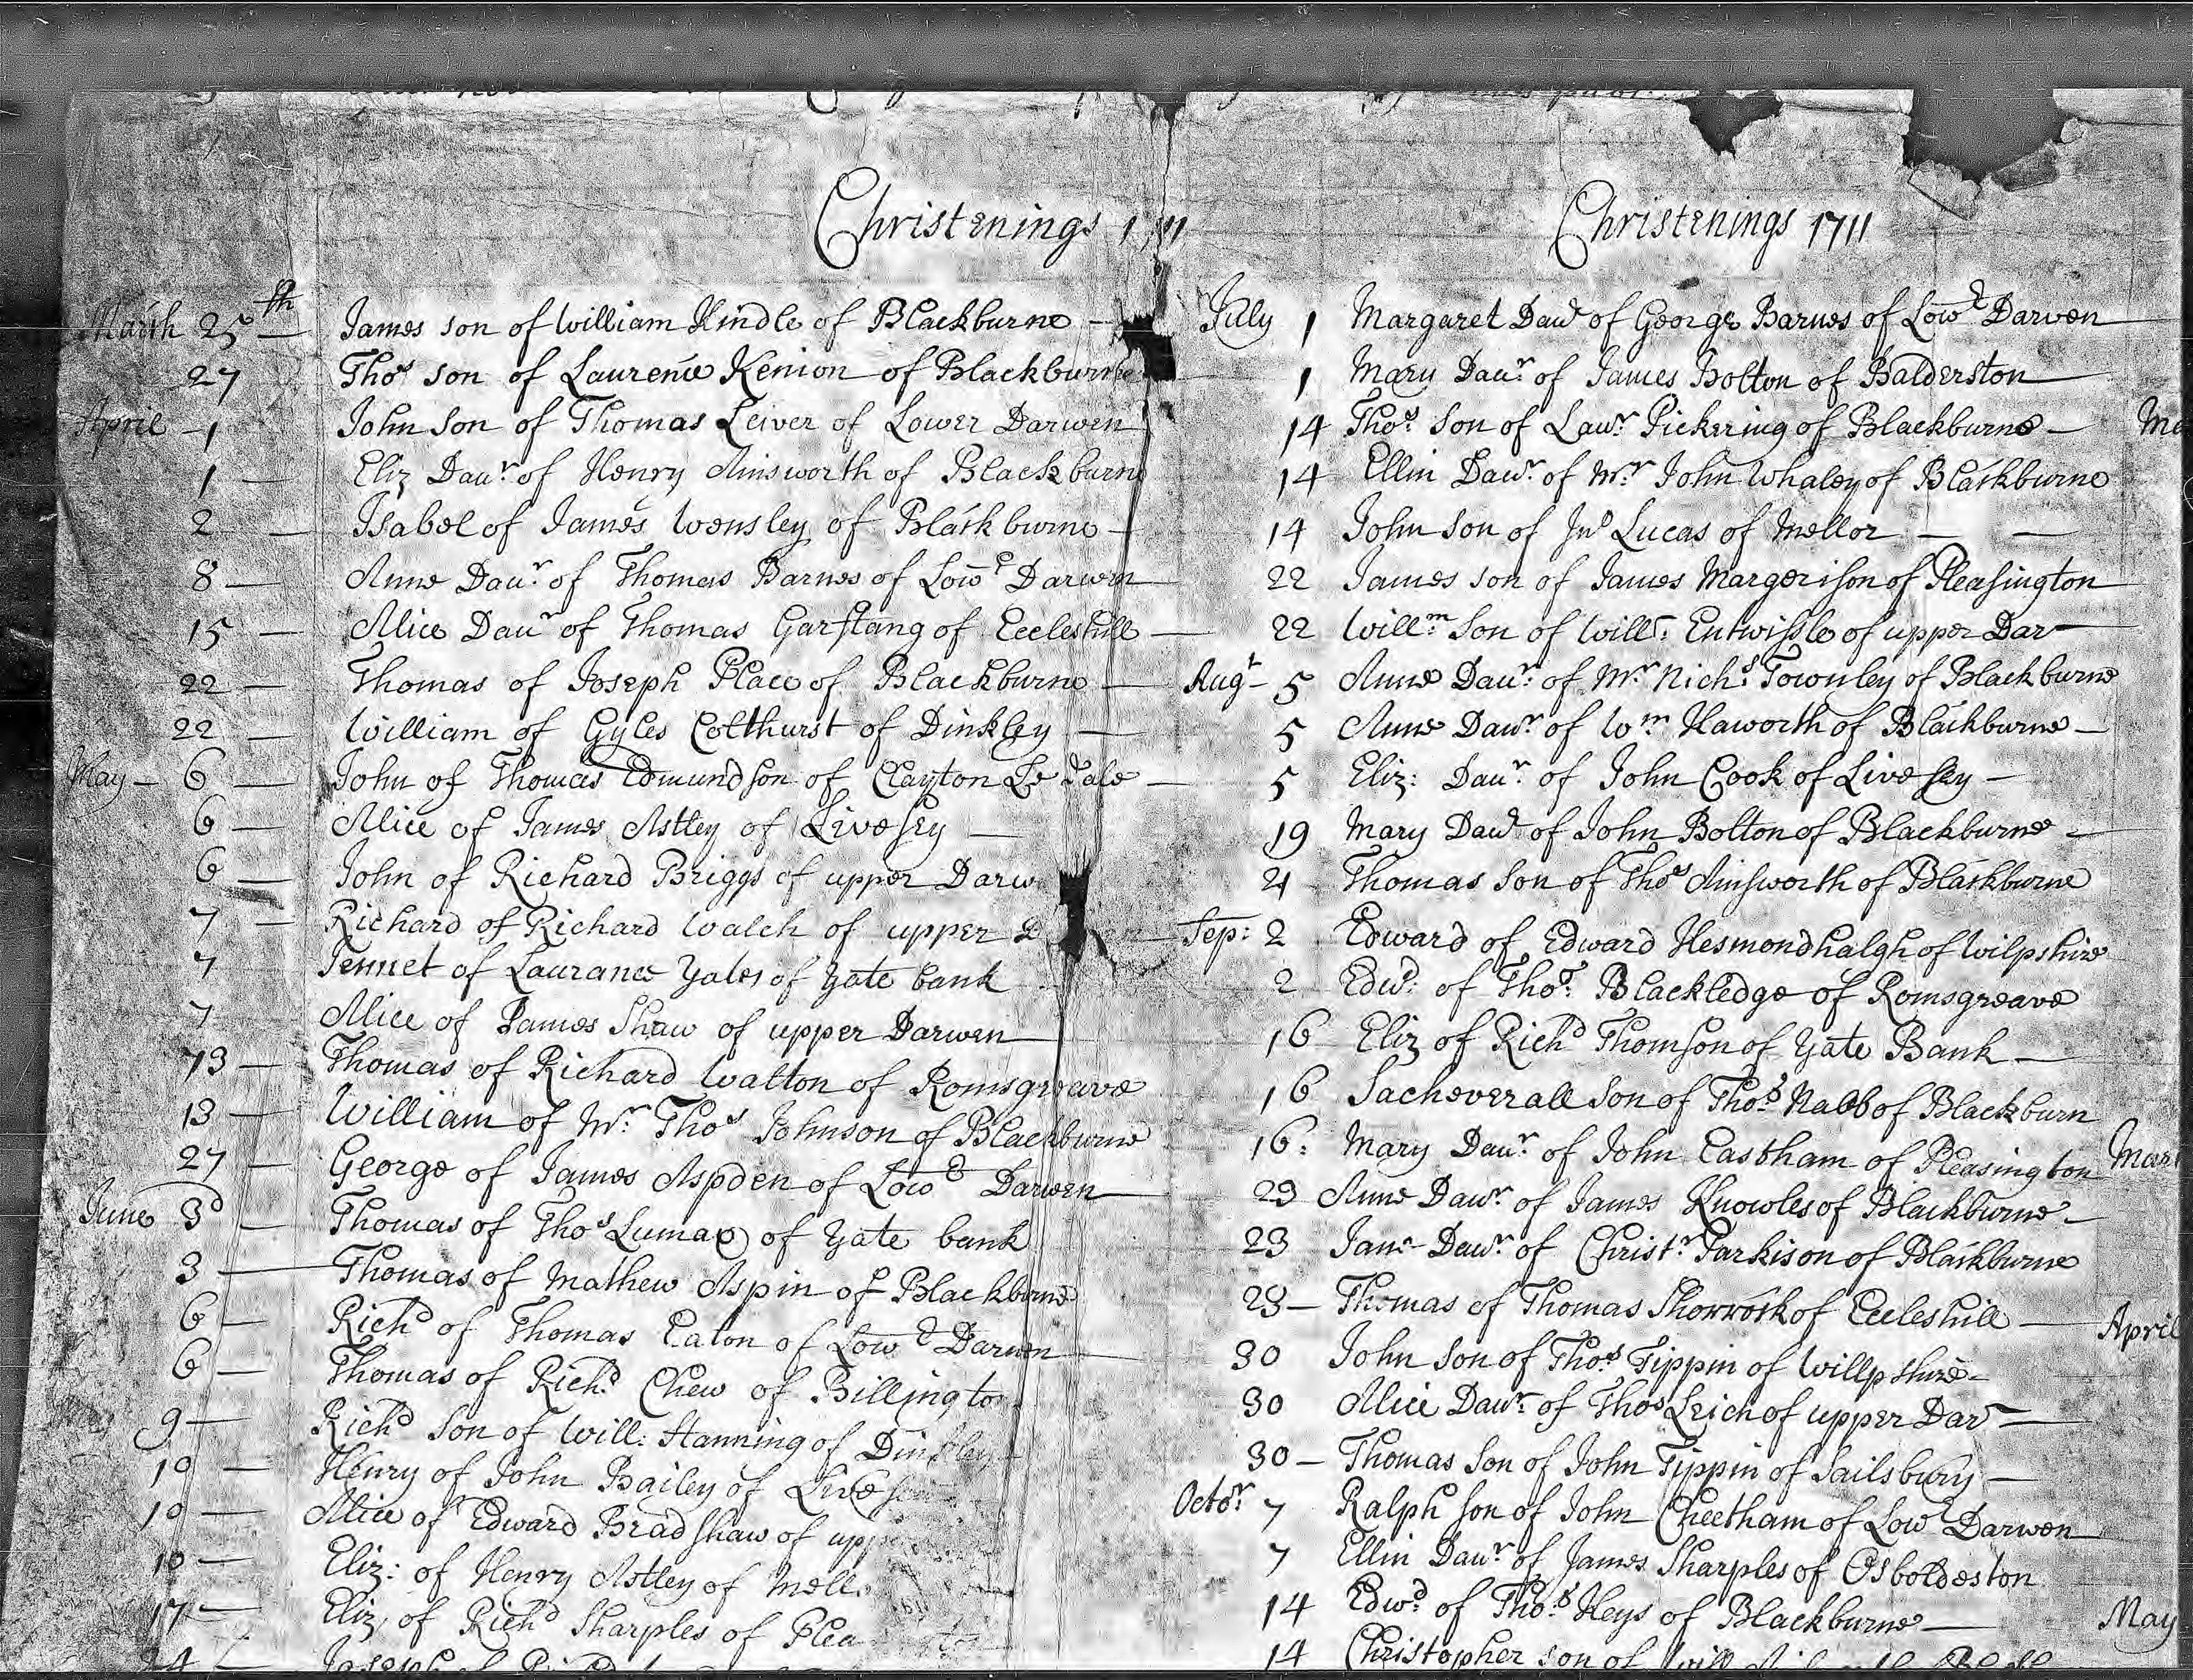 Christenings 1711
March 25th James son of William Kindle of Blackburne
27 Thos son of Laurence Kenion of Blackburne
April 1 John Son of Thomas Leiver of Lower Darwen
1 Eliz Daur of Henry Ainsworth of Blackburne
2 Isabel of James Wensley of Blackburne
8 Anne Daur of Thomas Barnes of Lowr Darwen
15 Alice Daur of Thomas Garstang of Eccleshill
22 Thomas of Joseph Place of Blackburne
22 William of Gyles Colthurst of Dinkley
May 6 John of Thomas Edmundson of Clayton Le dale
6 Alice of James Astley of Livesey
6 John of Richard Briggs of upper Darw
7 Richard of Richard Walch of upper D
7 Jennet of Laurance Yates of Yate bank
7 Alice of James Shaw of upper Darwen
13 Thomas of Richard Walton of Romsgreave
13 William of Mr Thos Johnson of Blackburne
27 George of James Aspden of Lowr Darwen
June 3d Thomas of Thos Lumax of Yate bank
3 Thomas of Mathew Aspin of Blackburne
6 Richd of Thomas Eaton of Lowr Darwen
6 Thomas of Richd Chew of Billington
9 Richd Son of Will: Hanning of Dinkley
10 Henry of John Bailey of Livese
10 Alice of Edward Bradshaw of upp
10 Eliz: of Henry Astley of Mell
17 Eliz of Richd Sharples of Plea
24 Joseph of
Christenings 1711
July 1 Margaret Daur of George Barnes of Lowr Darwen
1 Mary Daur of James Bolton of Balderston
14 Thos Son of Lawr Pickering of Blackburne
14 Ellin Dawr of Mr John Whaley of Blackburne
14 John Son of Jno Lucas of Mellor
22 James son of James Margerison of Pleasington
22 Willm Son of Will: Entwissle of upper Dar
Augt 5 Anne Daur of Mr Nichs Townley of Blackburne
5 Anne Dawr of Wm Haworth of Blackburne
5 Eliz: Daur of John Cook of Livesey
19 Mary Dawr of John Bolton of Blackburne
21 Thomas Son of Thos Ainsworth of Blackburne
Sep: 2 Edward of Edward Hesmondhalgh of Wilpshire
2 Edwd: of Thos: Blackledge of Romsgreave
16 Eliz of Richd Thomson of Yate Bank
16 Sacheverall Son of Thos Nabb of Blackburn
16: Mary Daur of John Eastham of Pleasington
23 Anne Dawr of James Knowles of Blackburne
23 Jane Dawr of Christr Parkison of Blackburne
23 Thomas of Thomas Shorrock of Eccleshill
30 John Son of Thos Tippin of Willpshire
30 Alice Dawr of Thos Leich of upper Dar
30 Thomas Son of John Tippin of Sailsbury
Octor 7 Ralph Son of John Cheetham of Lowr Darwen
7 Ellin Dawr of James Sharples of Osboldeston
14 Edwd of Thos Heys of Blackburne
14 Christopher son of Will
April
May